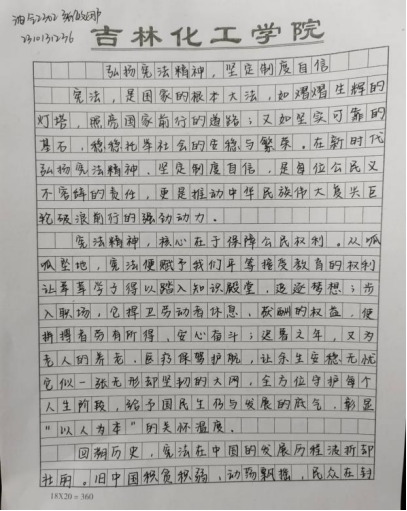 油全2302
2310131236
吉林化工学院
弘扬宪法精神，坚定制度自信
宪法，是国家的根本大法，如熠熠生辉的
灯塔，照亮国家前行的道路；又如坚实可靠的
基石，稳稳托举社会的安稳与繁荣。在新时代
弘扬宪法精神、坚定制度自信，是每位公民义
不容辞的责任，更是推动中华民族伟大复兴巨
轮破浪前行的强劲动力。
宪法精神，核心在于保障公民权利。从呱
呱坠地，宪法便赋予我们平等接受教育的权利
让莘莘学子得以踏入知识殿堂，追逐梦想；步
入职场，它捍卫劳动者休息、获酬的权益，使
拼搏者劳有所得，安心奋斗；迟暮之年，又为
老人的养老、医疗保驾护航，让余生安稳无忧
它似一张无形却坚韧的大网，全方位守护每个
人生阶段，给予国民生存与发展的底气，彰显
“以人为本”的关怀温度。
回溯历史，宪法在中国的发展历程波折却
壮丽。旧中国积贫积弱，动荡飘摇，民众在封
18X20=360